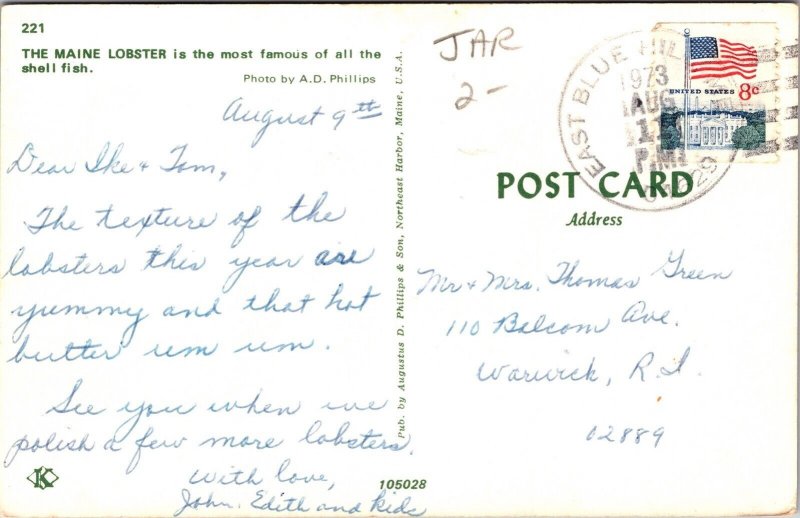 221
THE MAINE LOBSTER is the most famous of all the
shell fish.
Photo by A.D. Phillips
August 9th
Dear Ike & Tom,
The texture of the
lobsters this year are
yummy and that hot
butter um um.
See you when we
polish a few more lobsters.
With love,
John, Edith and kids
K
105028
Pub. by Augustus D. Phillips & Son, Northeast Harbor, Maine, U.S.A.
JAR
2-
EAST BLUE HILL
1973
AUG
P.M.
UNITED STATES 8c
POST CARD
Address
Mr & Mrs. Thomas Green
110 Balcom Ave.
Warwick, R.I.
02889